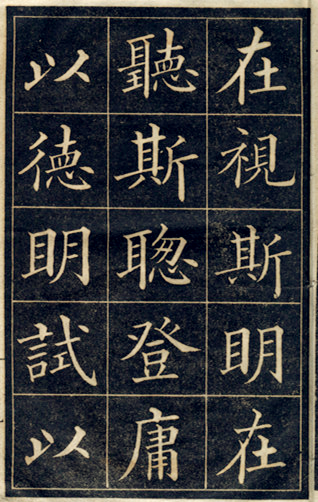 在視斯明在
聽斯聦登庸
以徳明試以